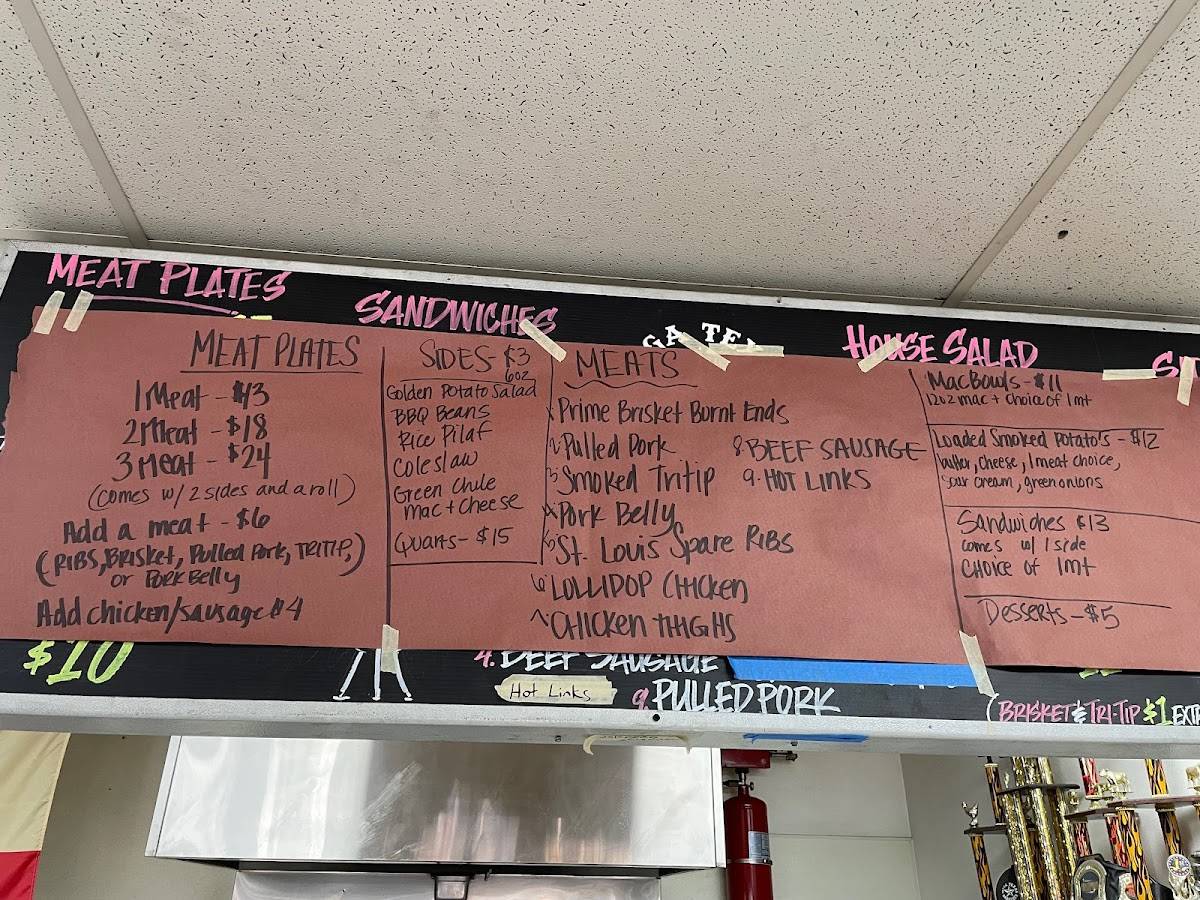 MEAT PLATES
SANDWICHES
HOUSE SALAD
MEAT PLATES
1 Meat - $13
2 Meat - $18
3 Meat - $24
(comes w/ 2 sides and a roll)
Add a meat - $6
(RIBS, BRISKET, Pulled Pork, TRITIP,)
or PORK Belly
Add chicken/sausage $4
SIDES - $3
6oz
Golden Potato Salad
BBQ Beans
Rice Pilaf
Coleslaw
Green Chile
Mac + Cheese
Quarts - $15
MEATS
Prime Brisket Burnt Ends
2 Pulled Pork
3 Smoked Tritip
Pork Belly
5 St. Louis Spare RIBS
6 LOLLIPOP CHICKEN
CHICKEN THIGHS
8. BEEF SAUSAGE
9. HOT LINKS
Mac Bowls - $11
12oz mac + choice of 1mt
Loaded Smoked Potato's - $12
butter, cheese, 1 meat choice,
sour cream, green onions
Sandwiches $13
comes w/ 1 side
CHOICE OF 1mt
Desserts - $5
$10
4. BEEF SAUSAGE
Hot Links
9. PULLED PORK
(BRISKET & TRI-TIP $1 EXTR